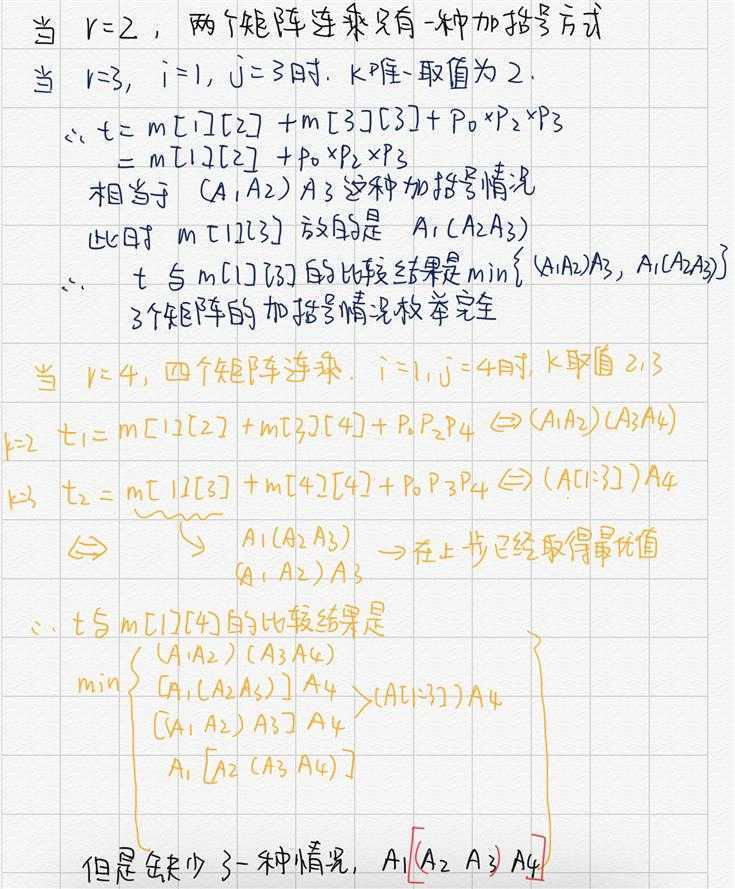 当 r=2, 两个矩阵连乘只有一种加括号方式
当 r=3, i=1, j=3时. k唯一取值为 2.
∴ t = m[1][2] + m[3][3] + P₀×P₂×P₃
= m[1][2] + P₀×P₂×P₃
相当于 (A₁A₂)A₃ 这种加括号情况
此时 m[1][3] 放的是 A₁(A₂A₃)
∴ t 与 m[1][3] 的比较结果是 min{(A₁A₂)A₃, A₁(A₂A₃)}
3个矩阵的加括号情况枚举完全
当 r=4, 四个矩阵连乘. i=1, j=4时, k取值 2,3
k=2 t₁ = m[1][2] + m[3][4] + P₀P₂P₄ ⇔ (A₁A₂)(A₃A₄)
k=3 t₂ = m[1][3] + m[4][4] + P₀P₃P₄ ⇔ (A[1:3])A₄
⇔ ↘ A₁(A₂A₃) → 在上步已经取得最优值
(A₁A₂)A₃
∴ t与m[1][4]的比较结果是
min { (A₁A₂)(A₃A₄)
[A₁(A₂A₃)]A₄ > (A[1:3])A₄
[(A₁A₂)A₃]A₄
A₁[A₂(A₃A₄)] }
但是缺少了一种情况, A₁[(A₂A₃)A₄]